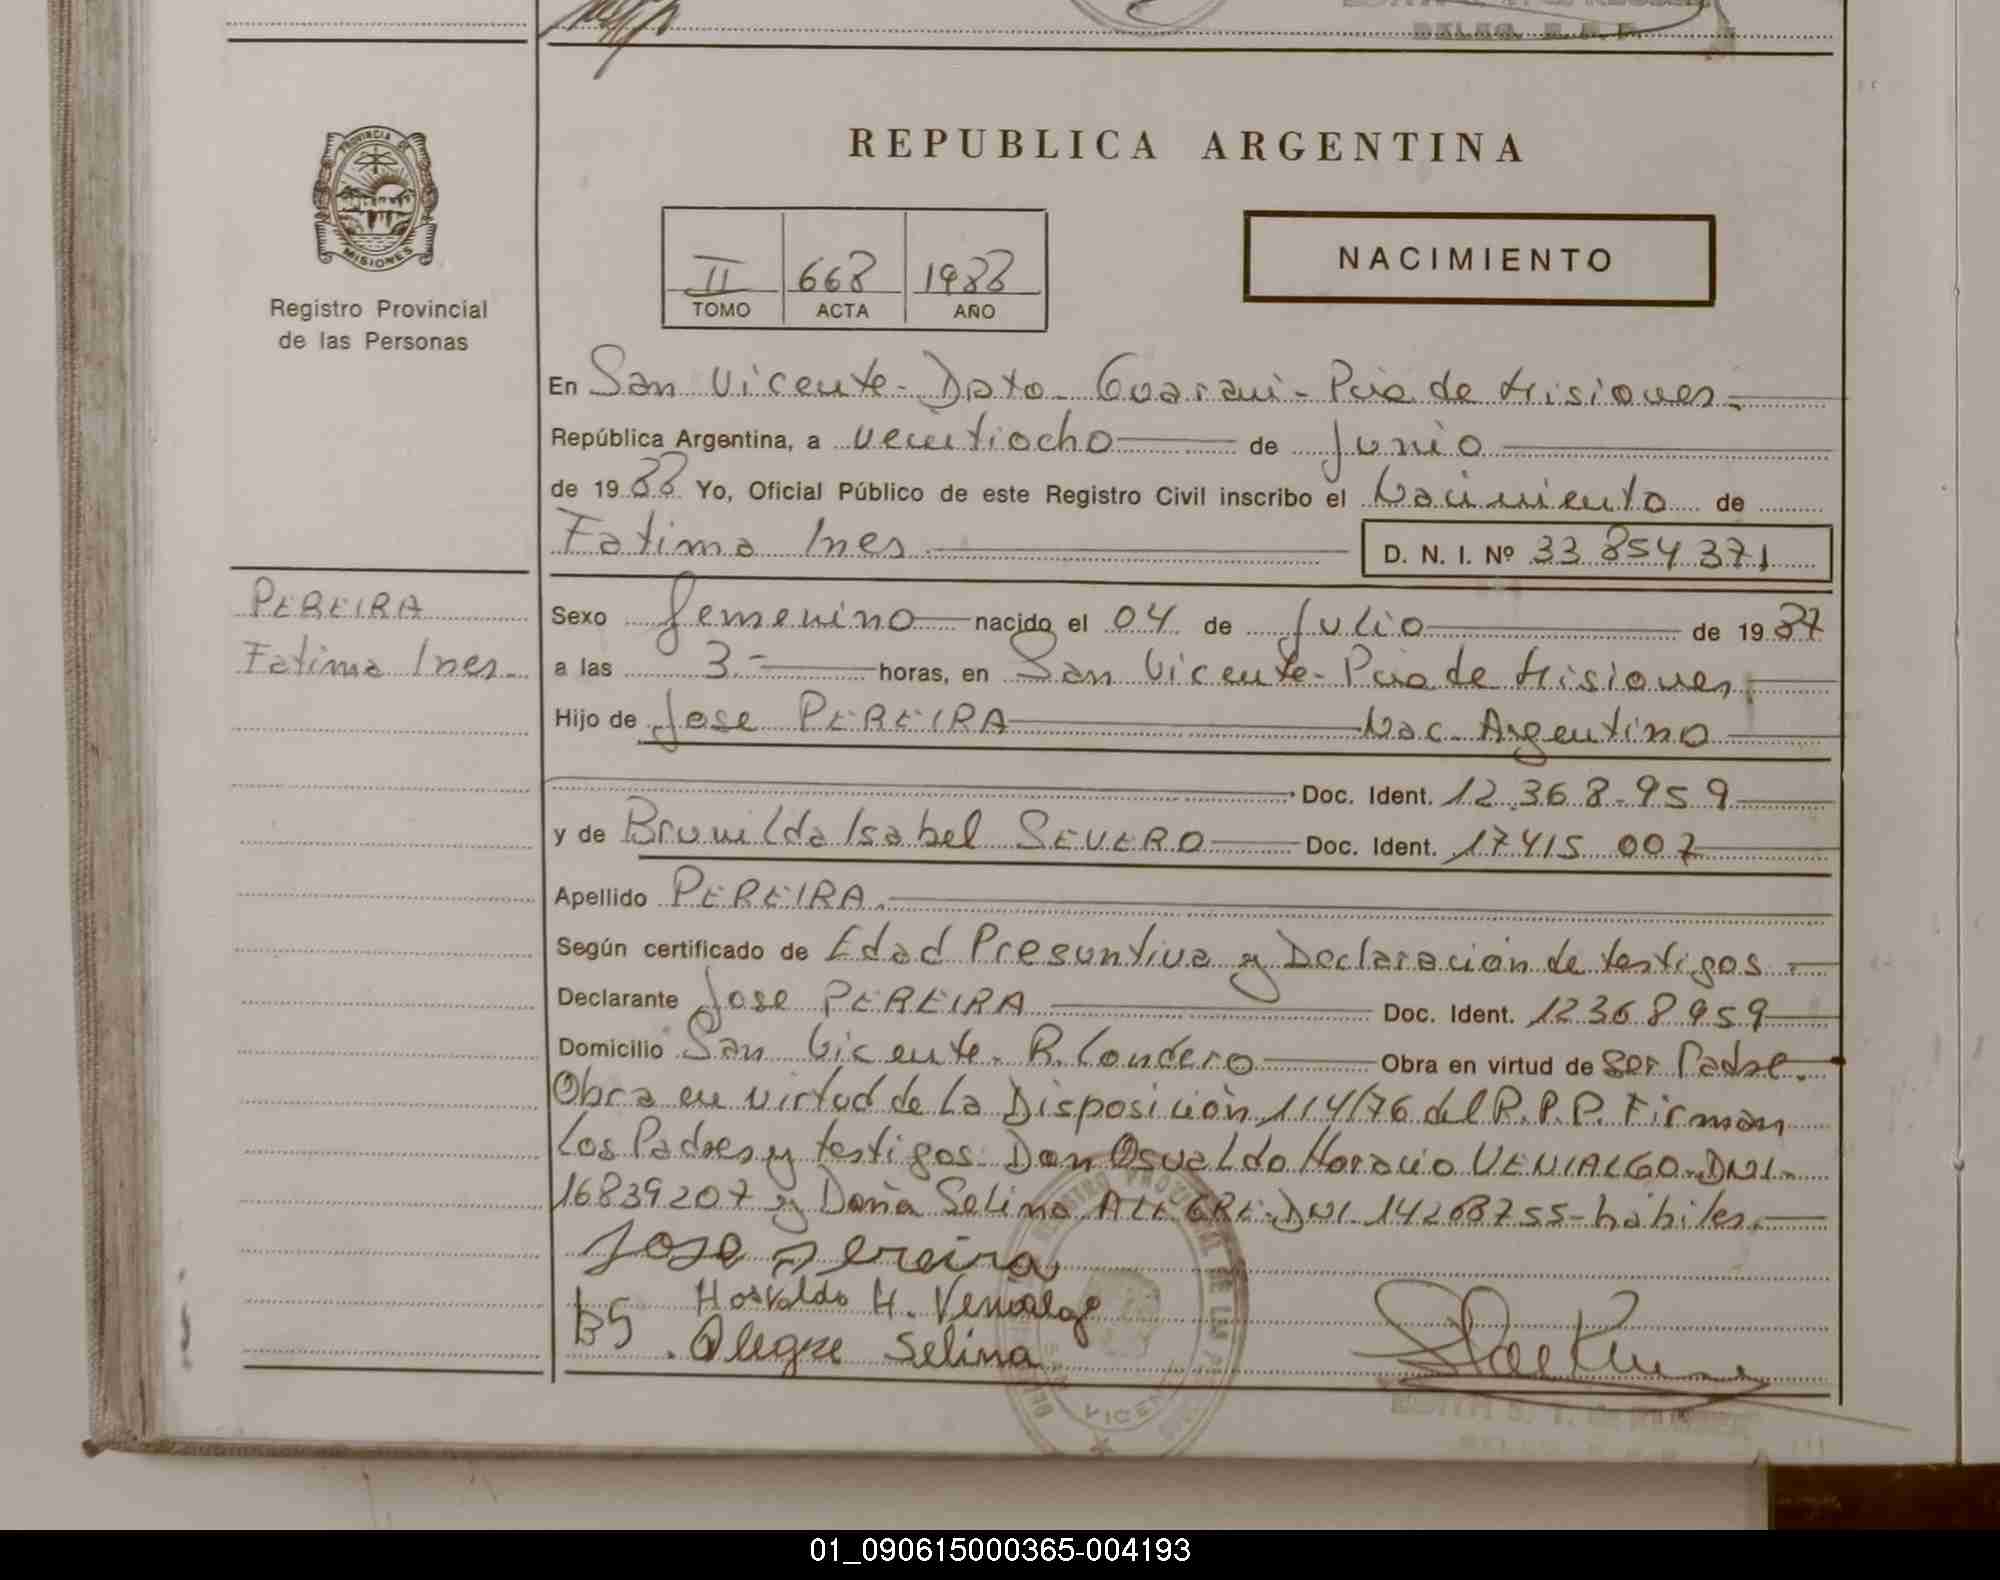 REPUBLICA ARGENTINA
PROVINCIA DE MISIONES
Registro Provincial
de las Personas
II 668 1988
TOMO ACTA AÑO
NACIMIENTO
En San Vicente - Dpto. Guarani - Pcia de Misiones.-
República Argentina, a veintiocho de Junio
de 1988 Yo, Oficial Público de este Registro Civil inscribo el Nacimiento de
Fatima Ines D. N. I. Nº 33.854.371
PEREIRA
Fatima Ines.
Sexo femenino nacido el 04 de Julio de 1987
a las 3.- horas, en San Vicente - Pcia de Misiones.
Hijo de Jose PEREIRA Nac. Argentino
Doc. Ident. 12.368.959
y de Brunilda Isabel SEVERO Doc. Ident. 17415.007
Apellido PEREIRA.
Según certificado de Edad Presuntiva y Declaración de testigos.-
Declarante Jose PEREIRA Doc. Ident. 12368959
Domicilio San Vicente. R. Londero Obra en virtud de ser Padre.
Obra en virtud de la Disposición 114/76 del R.P.P. Firman
Los Padres y testigos Don Osvaldo Horacio VENIALGO - DNI.-
16839207 y Doña Selima ALEGRE - DNI. 14268755 - hábiles.
Jose Pereira
Hosvaldo H. Venialgo
BS
Alegre Selima
01_090615000365-004193